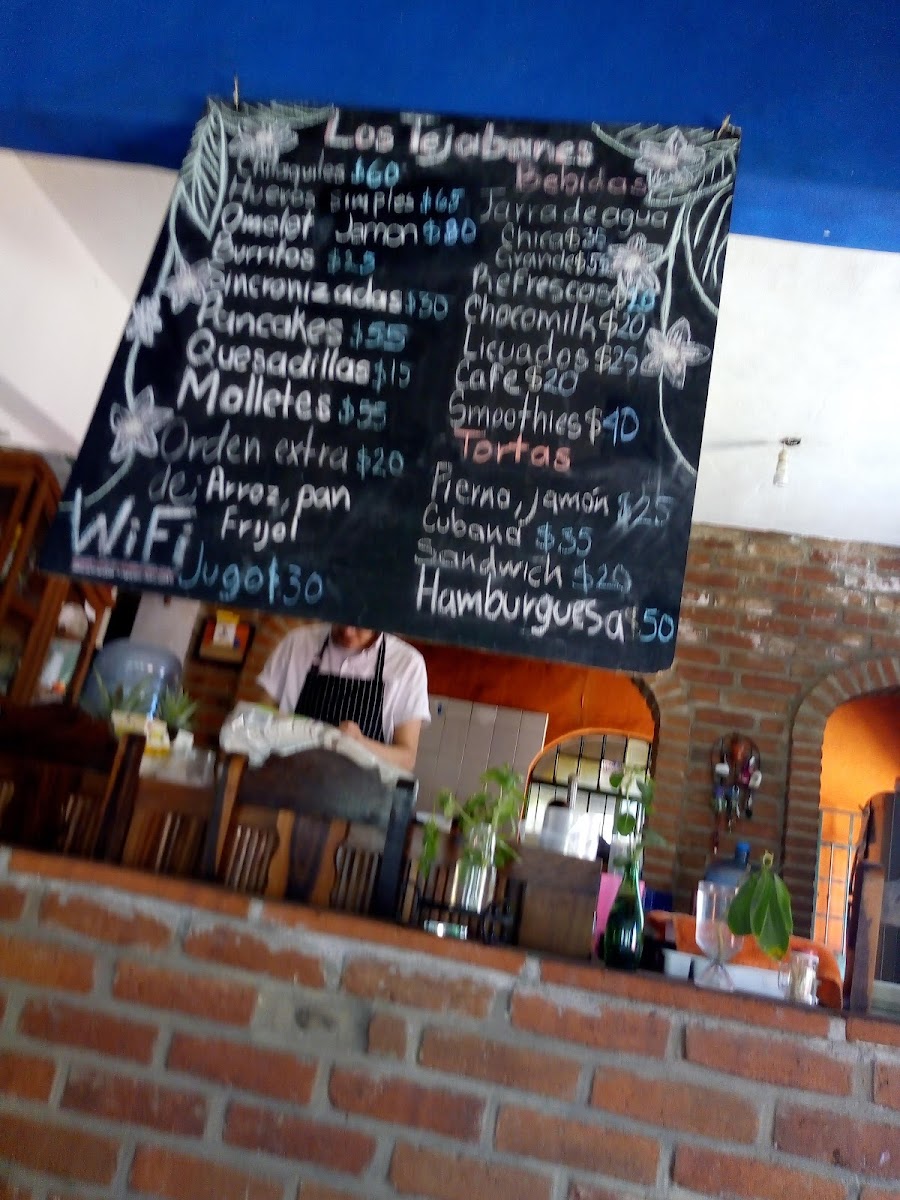 Los Tejabanes
Chilaquiles $60
Huevos simples $65
Omelet Jamon $80
Burritos $25
Sincronizadas $30
Pancakes $55
Quesadillas $15
Molletes $55
Orden extra $20
de: Arroz, pan
Frijol
WiFi
Jugo $30
Bebidas
Jarra de agua
Chica $35
Grande $55
Refrescos $20
Chocomilk $20
Licuados $25
Cafe $20
Smoothies $40
Tortas
Pierna, jamón $25
Cubana $35
Sandwich $20
Hamburguesa $50